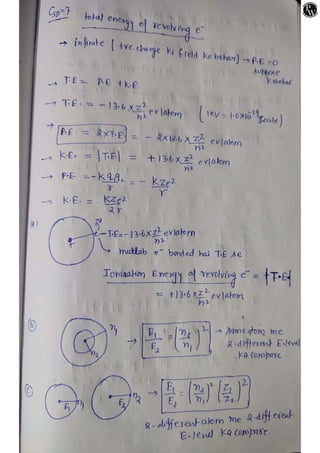 C50=7
total energy of revolving e⁻
→ infinite (+ve charge ki field ke bahar) → P.E=0 suppose
→ T.E = P.E + K.E.
→ T.E. = -13.6 × z²/n² ev/atom (1ev = 1.6×10⁻¹⁹ Joule)
→ P.E = 2×T.E = - 2×13.6 × z²/n² ev/atom
→ K.E. = |T.E| = + 13.6 × z²/n² ev/atom
→ P.E. = -K q₁q₂/r = - Kze²/r
→ K.E. = Kze²/2r
e⁻ -T.E = -13.6×z²/n² ev/atom
↳ matlab e⁻ bonded hai T.E se.
Ionisation Energy of revolving e⁻ = +|T.E|
= +13.6×z²/n² ev/atom
(b) n₁ n₂ → E₁/E₂ = (n₂/n₁)² → Same atom me
2-different E-level
ka compare
(c) E₁ n₁ E₂ n₂ → E₁/E₂ = (n₂/n₁)² (z₁/z₂)²
2-different atom me 2-different
E-level ka compare.